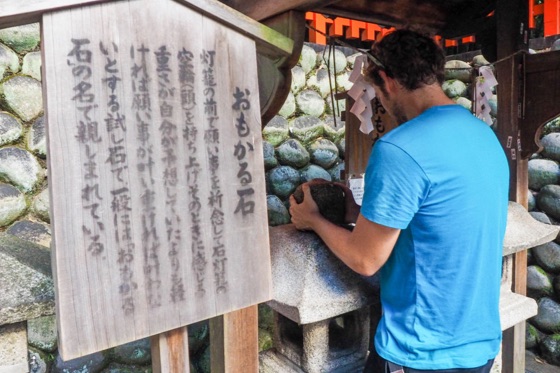 おもかる石
灯篭の前で願い事を祈念して石灯篭の
空輪(頭)を持ち上げ、そのときに感じる
重さが、自分が予想していたよりも軽
ければ願い事が叶い、重ければ叶わな
いとする試し石で、一般には"おもかる
石"の名で親しまれている。